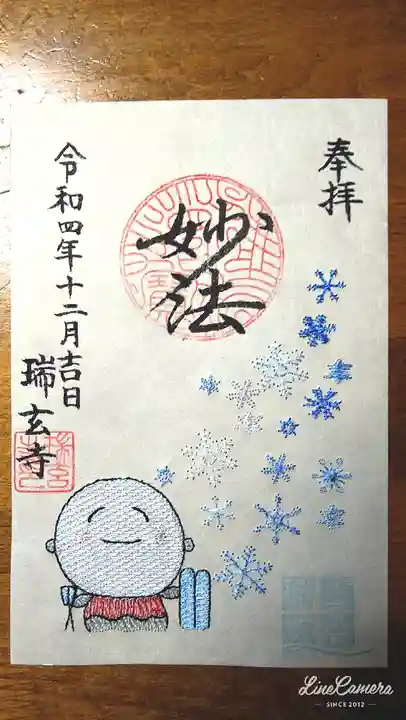 奉拝
妙法
令和四年十二月吉日
瑞玄寺
LineCamera
SINCE 2012